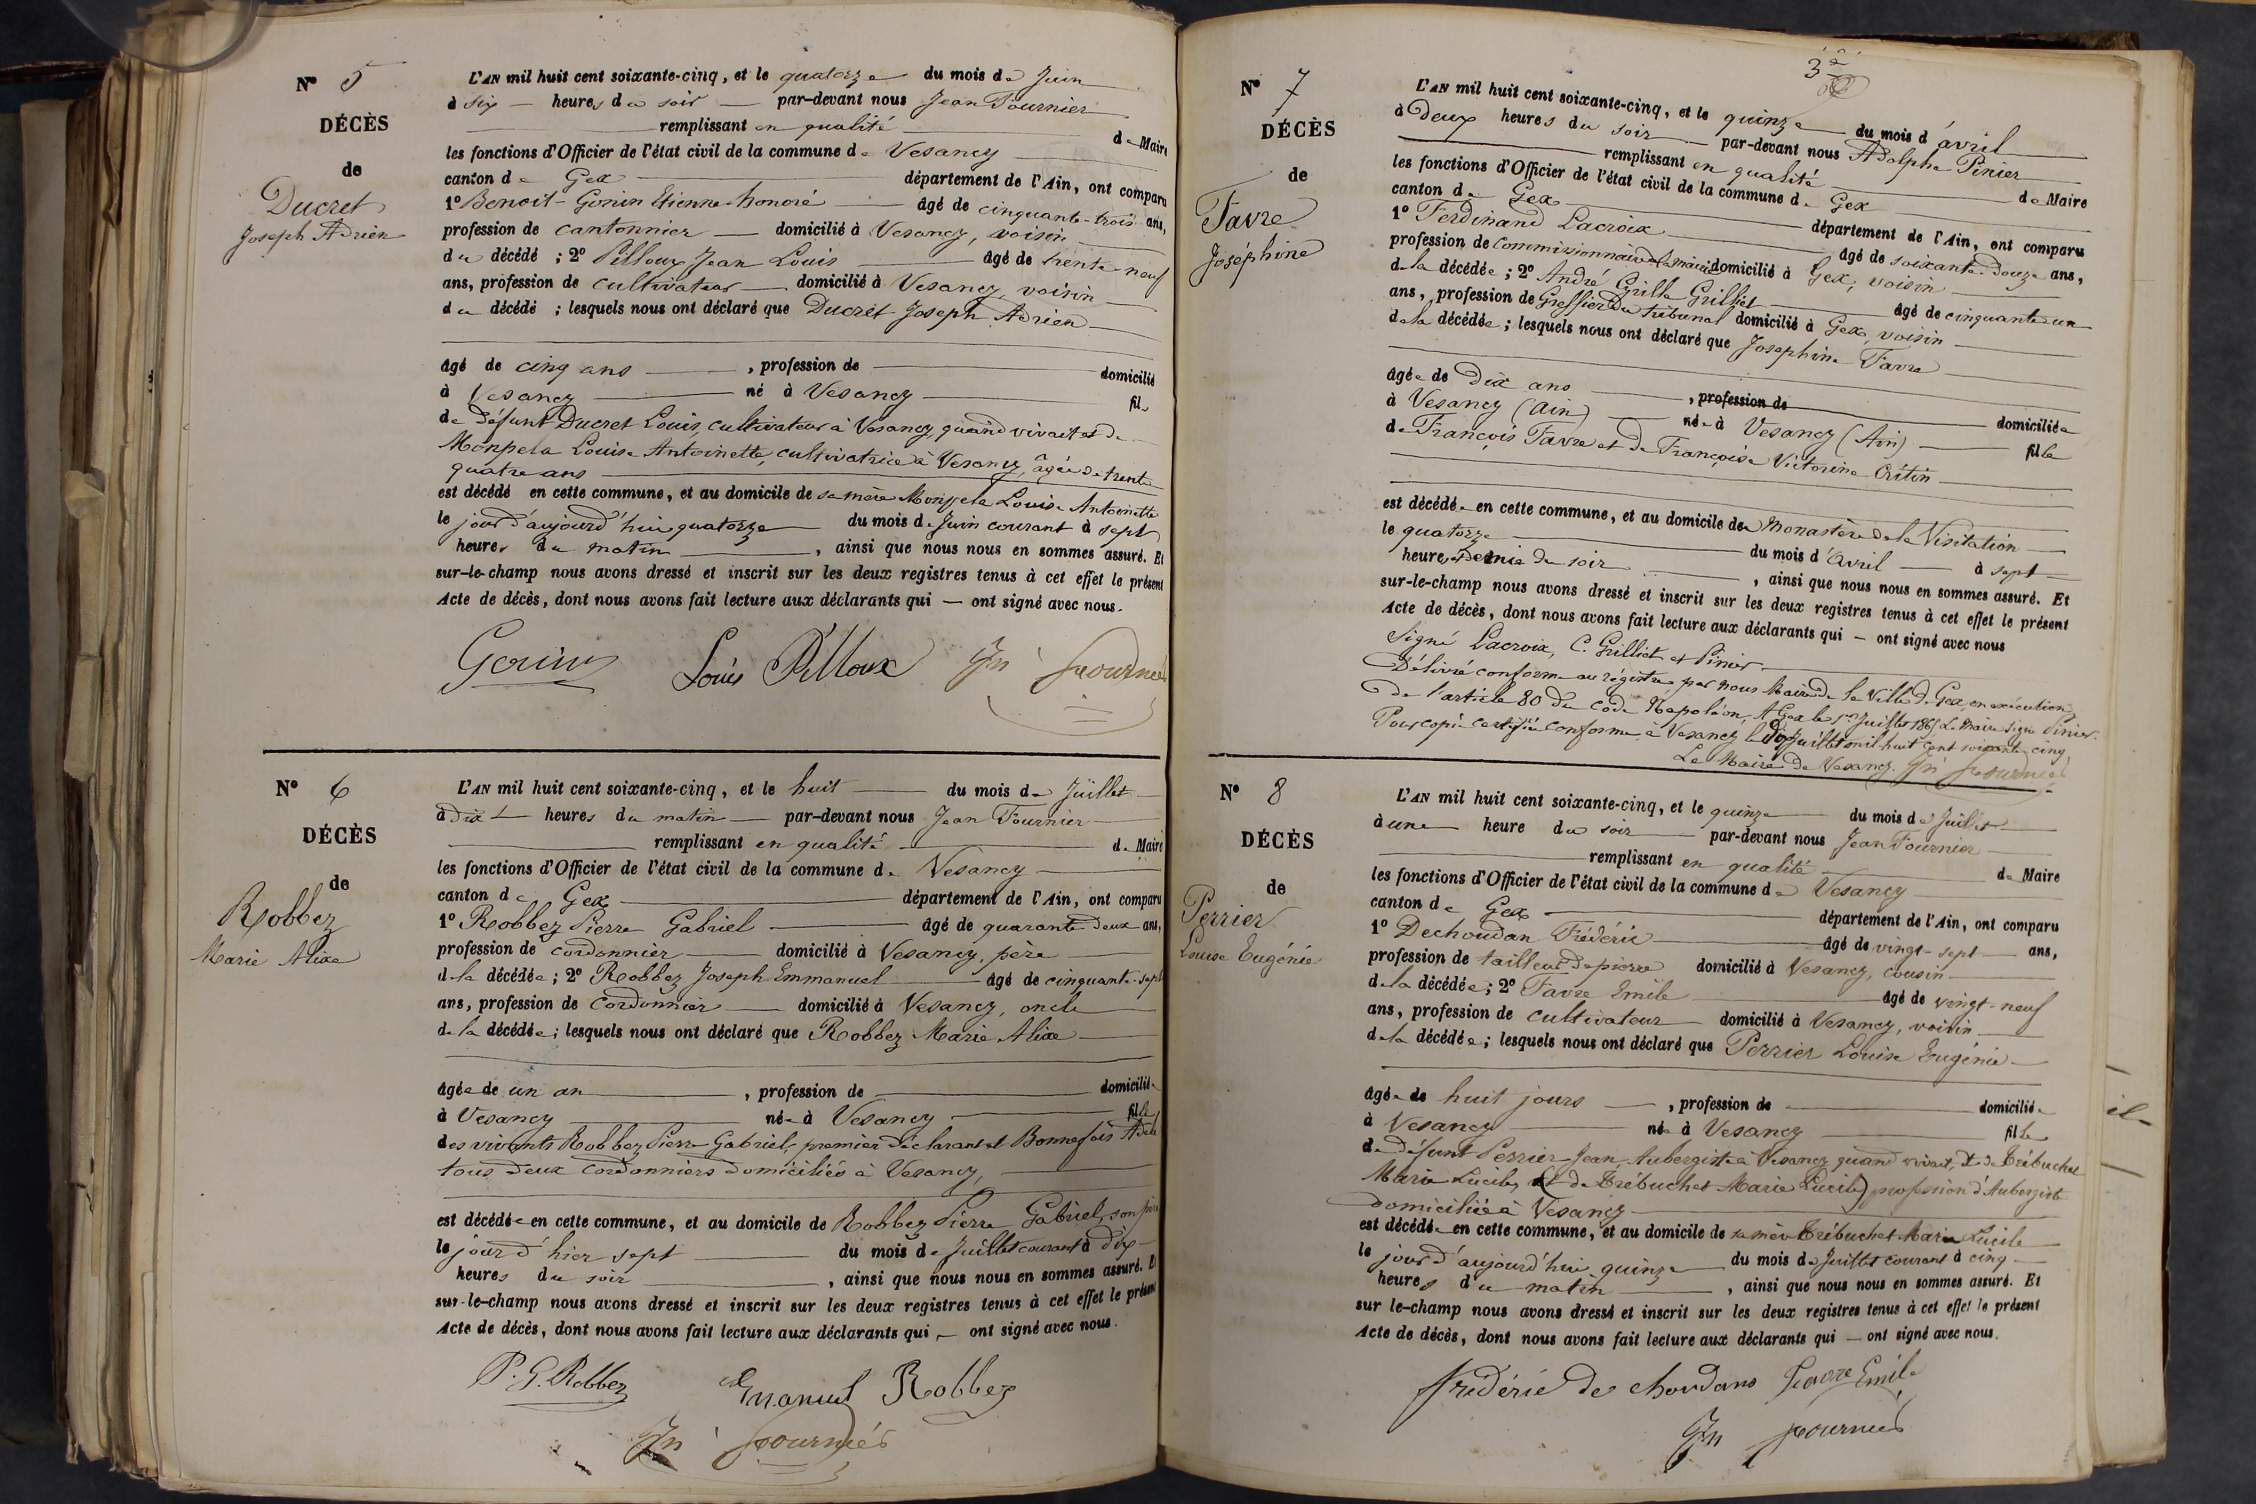 N° 5
DÉCÈS
de
Ducret
Joseph Adrien
L'AN mil huit cent soixante-cinq, et le quatorze du mois de Juin
à six heures du soir par-devant nous Jean Fournier
remplissant en qualité de Maire
les fonctions d'Officier de l'état civil de la commune de Vesancy
canton de Gex département de l'Ain, ont comparu
1° Benoit-Gonin Etienne honoré âgé de cinquante-trois ans,
profession de cantonnier domicilié à Vesancy, voisin
du décédé ; 2° Pilloux Jean Louis âgé de trente-neuf
ans, profession de cultivateur domicilié à Vesancy, voisin
du décédé ; lesquels nous ont déclaré que Ducret Joseph Adrien
âgé de cinq ans , profession de domicilié
à Vesancy né à Vesancy fils
de défunt Ducret Louis, cultivateur à Vesancy, quand vivait et de
Monpela Louise Antoinette, cultivatrice à Vesancy, âgée de trente
quatre ans
est décédé en cette commune, et au domicile de sa mère Monpela Louise Antoinette
le jour d'aujourd'hui quatorze du mois de Juin courant à sept
heures du matin , ainsi que nous nous en sommes assuré. Et
sur-le-champ nous avons dressé et inscrit sur les deux registres tenus à cet effet le présent
Acte de décès, dont nous avons fait lecture aux déclarants qui — ont signé avec nous.
Gonin Louis Pilloux Jn Fournier
N° 6
DÉCÈS
de
Robbez
Marie Alixe
L'AN mil huit cent soixante-cinq, et le huit du mois de Juillet
à dix heures du matin par-devant nous Jean Fournier
remplissant en qualité de Maire
les fonctions d'Officier de l'état civil de la commune de Vesancy
canton de Gex département de l'Ain, ont comparu
1° Robbez Pierre Gabriel âgé de quarante-deux ans,
profession de cordonnier domicilié à Vesancy, père
de la décédée ; 2° Robbez Joseph Emmanuel âgé de cinquante-sept
ans, profession de cordonnier domicilié à Vesancy, oncle
de la décédée ; lesquels nous ont déclaré que Robbez Marie Alixe
âgée de un an , profession de domiciliée
à Vesancy née à Vesancy fille
des vivants Robbez Pierre Gabriel, premier déclarant et Bonnefois Adèle
tous deux cordonniers domiciliés à Vesancy,
est décédée en cette commune, et au domicile de Robbez Pierre Gabriel, son père
le jour d'hier sept du mois de Juillet courant à dix
heures du soir , ainsi que nous nous en sommes assuré. Et
sur-le-champ nous avons dressé et inscrit sur les deux registres tenus à cet effet le présent
Acte de décès, dont nous avons fait lecture aux déclarants qui — ont signé avec nous.
P. G. Robbez Emanuel Robbez
Jn Fournier
3e
N° 7
DÉCÈS
de
Favre
Joséphine
L'AN mil huit cent soixante-cinq, et le quinze du mois d'avril
à Deux heures du soir par-devant nous Adolphe Pinier
remplissant en qualité de Maire
les fonctions d'Officier de l'état civil de la commune de Gex
canton de Gex département de l'Ain, ont comparu
1° Ferdinand Lacroix âgé de soixante-douze ans,
profession de Commissionnaire de la mairie domicilié à Gex, voisin
de la décédée ; 2° André Cyrille Grilliet âgé de cinquante-un
ans, profession de Greffier du tribunal domicilié à Gex, voisin
de la décédée ; lesquels nous ont déclaré que Josephine Favre
âgée de Dix ans , profession de domiciliée
à Vesancy (Ain) née à Vesancy (Ain) fille
de François Favre et de Françoise Victorine Critin
est décédée en cette commune, et au domicile du Monastère de la Visitation
le quatorze du mois d'avril à sept
heures et demie du soir , ainsi que nous nous en sommes assuré. Et
sur-le-champ nous avons dressé et inscrit sur les deux registres tenus à cet effet le présent
Acte de décès, dont nous avons fait lecture aux déclarants qui — ont signé avec nous
Signé Lacroix, C. Grilliet et Pinier
Délivré conforme au régistre par nous Maire de la Ville de Gex, en exécution
de l'article 80 du code Napoléon, A Gex le 1er Juillet 1865 Le Maire signé Pinier.
Pour copie certifiée conforme à Vesancy le Juillet mil huit cent soixante cinq
Le Maire de Vesancy. Jn Fournier
N° 8
DÉCÈS
de
Perrier
Louise Eugénie
L'AN mil huit cent soixante-cinq, et le quinze du mois de Juillet
à une heure du soir par-devant nous Jean Fournier
remplissant en qualité de Maire
les fonctions d'Officier de l'état civil de la commune de Vesancy
canton de Gex département de l'Ain, ont comparu
1° Dechoudan Frédéric âgé de vingt-sept ans,
profession de tailleur de pierre domicilié à Vesancy, cousin
de la décédée ; 2° Favre Emile âgé de vingt-neuf
ans, profession de cultivateur domicilié à Vesancy, voisin
de la décédée ; lesquels nous ont déclaré que Perrier Louise Eugénie
âgée de huit jours , profession de domiciliée
à Vesancy née à Vesancy fille
de défunt Perrier Jean, Aubergiste à Vesancy quand vivait, et de Trébuchet
Marie Lucile, (et de Trébuchet Marie Lucile) profession d'Aubergiste
domiciliée à Vesancy
est décédée en cette commune, et au domicile de sa mère Trébuchet Marie Lucile
le jour d'aujourd'hui quinze du mois de Juillet courant à cinq
heures du matin , ainsi que nous nous en sommes assuré. Et
sur le-champ nous avons dressé et inscrit sur les deux registres tenus à cet effet le présent
Acte de décès, dont nous avons fait lecture aux déclarants qui — ont signé avec nous.
frédéric de choudans Favre Emile
Jn Fournier